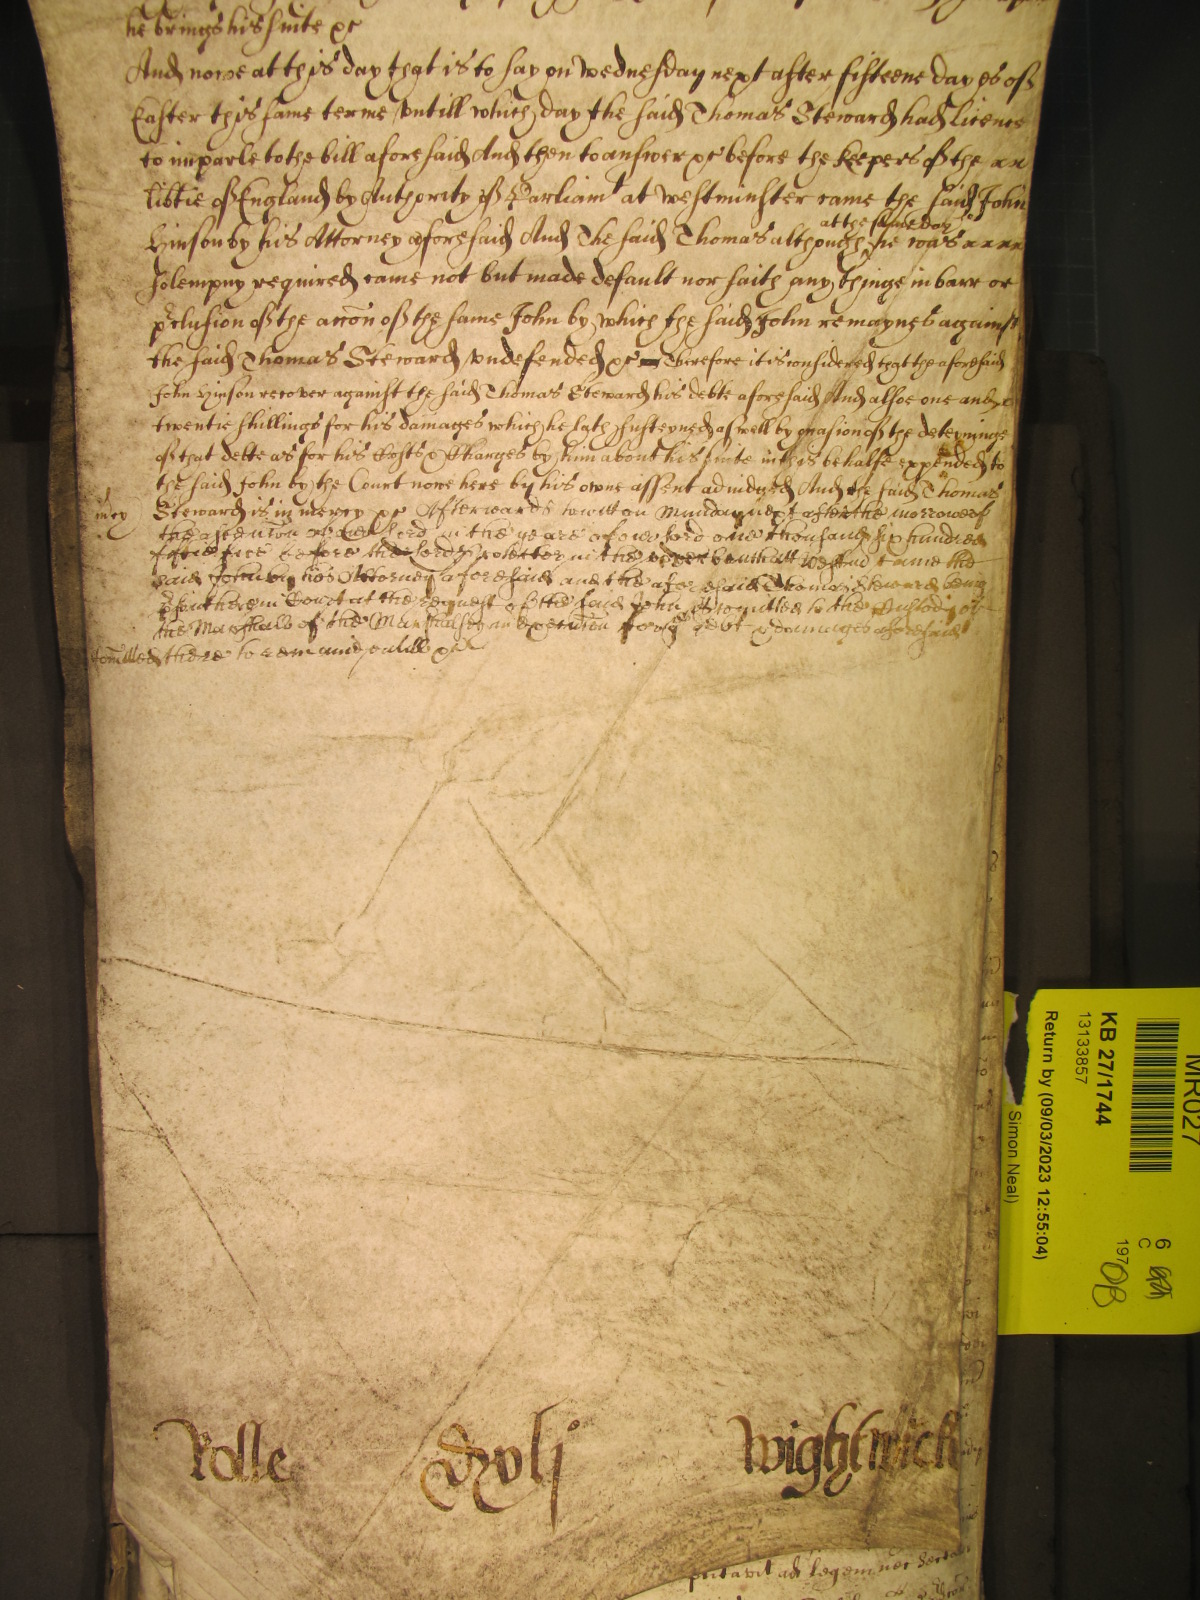 he brings his suite &c
And nowe at this day that is to say on Wednesday next after fifteene dayes of
Easter this same terme untill which day the said Thomas Steward had licence
to imparle to the bill aforesaid And then to answer &c before the Keepers of the
lib'tie of England by Authority of Parliamt at Westminster came the said John
at the same day
Hinson by his Attorney aforesaid And The said Thomas although he was
solempny required came not but made default nor saith any thinge in barr or
p'clusion of the accon of the same John by which the said John remaynes against
the said Thomas Steward undefended &c Therefore it is considered that the aforesaid
John Hinson recover against the said Thomas Steward his debte aforesaid And alsoe one and
twentie shillings for his damages which he hath susteyned aswell by occasion of the deteyninge
of that debte as for his Costs & Charges by him about his suite in this behalfe expended to
the said John by the Court nowe here by his owne assent adiudged And the said Thomas
mcy
Steward is in mercy &c Afterwards to wit on Munday next after the morrow of
the ascention of our Lord in the yeare of our Lord one thousand six hundred
fiftie five before the Lord Protector in the upper bench att Westm' came the
said John by his Attorney aforesaid and the aforesaid Thomas Steward being
p'sent here in Court at the request of the said John is comitted to the Custody of
the Marshall of the Marshalsey in execution for debt & damages aforesaid
comitted there to remaine untill &c
Rolle
xvlj
Wightwick
putavit ad legem nec
MR027
KB 27/1744
13133857
Return by (09/03/2023 12:55:04)
Simon Neal)
6
C
197